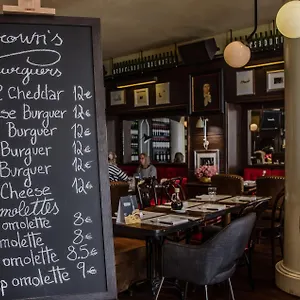 rown's
urguers
Cheddar 12€
se Burguer 12€
Burguer 12€
Burguer 12€
Burguer 12€
Cheese 12€
molettes
omolette 8€
molette 8€
omolette 8.5€
p omolette 9€